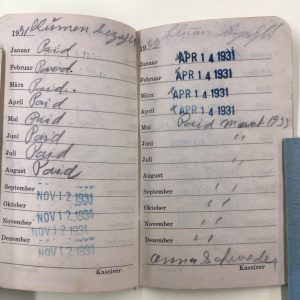 1931 Blumen bezahlt
Januar Paid
Februar Paid.
März Paid.
April Paid
Mai Paid
Juni Paid
Juli Paid
August Paid
September
Oktober NOV 12 1931
November NOV 12 1931
Dezember NOV 12 1931
Kassirer.
19 Blumen bezahlt
Januar APR 14 1931
Februar APR 14 1931
März APR 14 1931
April APR 14 1931
Mai Paid March 1933
Juni " "
Juli " "
August " "
September " "
Oktober " "
November " "
Dezember " "
Anna Schroeder
Kassirer.